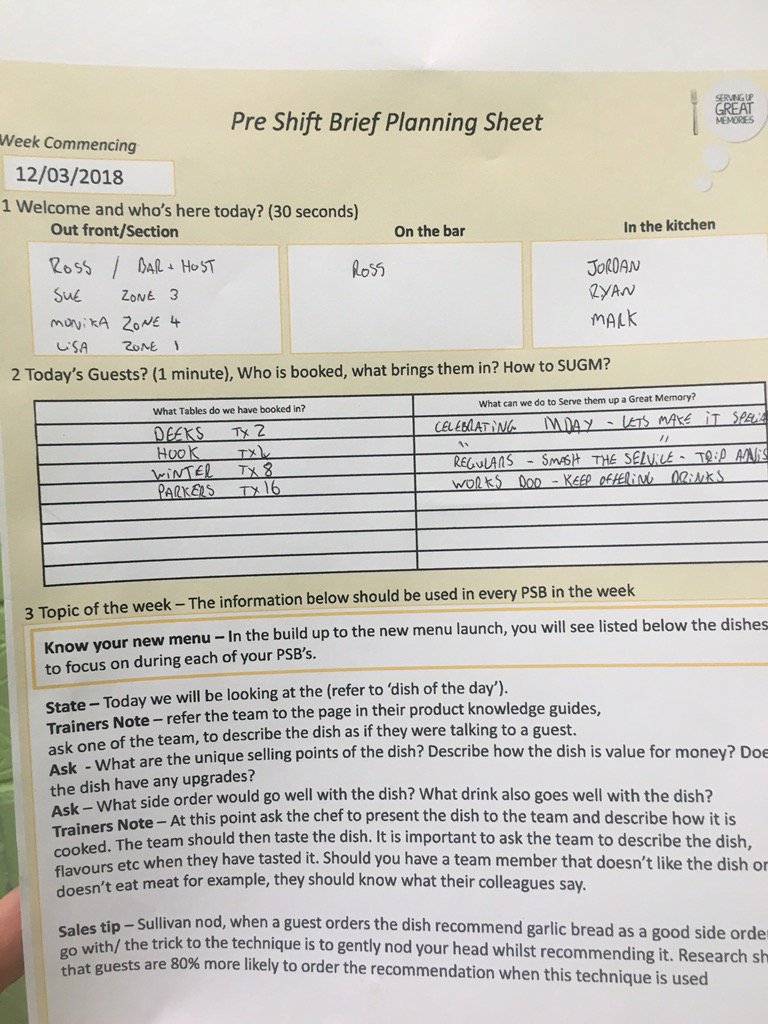 SERVING UP
GREAT
MEMORIES
Pre Shift Brief Planning Sheet
Week Commencing
12/03/2018
1 Welcome and who's here today? (30 seconds)
Out front/Section On the bar In the kitchen
ROSS / BAR + HOST ROSS JORDAN
SUE ZONE 3 RYAN
MONIKA ZONE 4 MARK
LISA ZONE 1
2 Today's Guests? (1 minute), Who is booked, what brings them in? How to SUGM?
What Tables do we have booked in? What can we do to Serve them up a Great Memory?
DEEKS TX 2 CELEBRATING MDAY - LETS MAKE IT
HOOK " "
WINTER TX 8 REGULARS - SMASH THE SERVICE - TRIP
PARKERS TX 16 WORKS DOO - KEEP OFFERING DRINKS
3 Topic of the week – The information below should be used in every PSB in the week
Know your new menu – In the build up to the new menu launch, you will see listed below the dishes
to focus on during each of your PSB's.
State – Today we will be looking at the (refer to 'dish of the day').
Trainers Note – refer the team to the page in their product knowledge guides,
ask one of the team, to describe the dish as if they were talking to a guest.
Ask - What are the unique selling points of the dish? Describe how the dish is value for money? Doe
the dish have any upgrades?
Ask – What side order would go well with the dish? What drink also goes well with the dish?
Trainers Note – At this point ask the chef to present the dish to the team and describe how it is
cooked. The team should then taste the dish. It is important to ask the team to describe the dish,
flavours etc when they have tasted it. Should you have a team member that doesn't like the dish or
doesn't eat meat for example, they should know what their colleagues say.
Sales tip – Sullivan nod, when a guest orders the dish recommend garlic bread as a good side orde
go with/ the trick to the technique is to gently nod your head whilst recommending it. Research sh
that guests are 80% more likely to order the recommendation when this technique is used